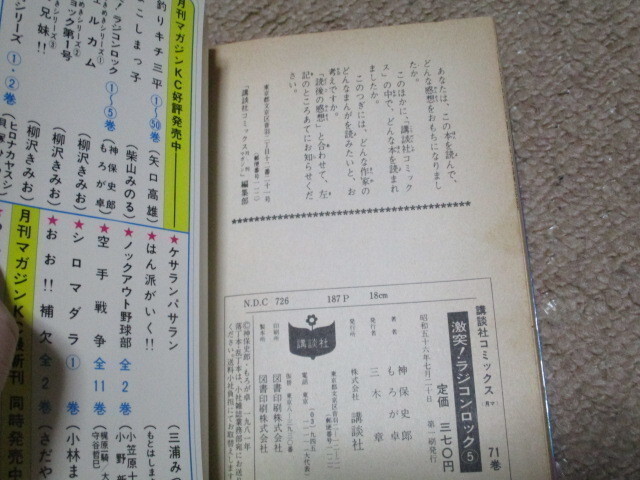 あなたは、この本を読んで、
どんな感想をおもちになりまし
たか。
このほかに、「講談社コミック
ス」の中で、どんな本を読まれ
ましたか。
このつぎには、どんな作家の
どんなまんがを読みたいと、お
考えですか。
「読後の感想」と合わせて、左
記のところあてにおお知らせくだ
さい。
東京都文京区音羽二丁目十二番二十一号
(郵便番号一一二)
「講談社コミックス月刊マガジン」編集部
N.D.C 726 187P 18cm
講談社コミックス
71巻
激突!ラジコンロック⑤
定価 三七〇円
昭和五十六年七月二十日 第一刷発行
著者 神保史郎
もろが卓
発行者 三木章
発行所 株式会社 講談社
東京都文京区音羽二—一二—二一
郵便番号一一二
電話 東京(03)九四五—一一一一(大代表)
印刷所 図書印刷株式会社
製本所 図書印刷株式会社
©神保史郎・もろが卓 一九八一年
講談社
月刊マガジンKC好評発売中
釣りキチ三平 1〜50巻 (矢口高雄)
こしまっ子 (柴山みのる)
ラジコンロック 1〜5巻 (神保史郎 もろが卓)
エルカム (柳沢きみお)
ック第1号 (柳沢きみお)
兄妹!! (柳沢きみお)
シリーズ 1・2巻
月刊マガジンKC最新刊 同時発売中
★ケサランパサラン 三浦み
★はん派がいく!! もとはしま
★ノックアウト野球部 全2巻 小笠原 小野新
★空手戦争 全11巻 梶原一騎/大 守谷哲巳
★シロマダラ 1巻 小林ま
★おお!!補欠 全2巻 さだや